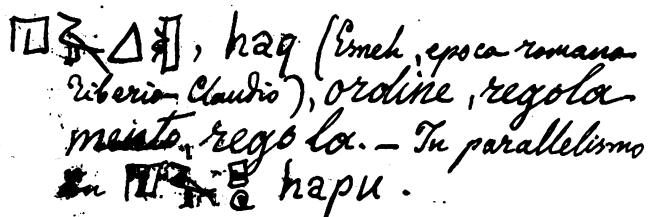 , haq (Esneh, epoca romana
Tiberio Claudio), ordine, regola
mento, regola. – In parallelismo
hapu.